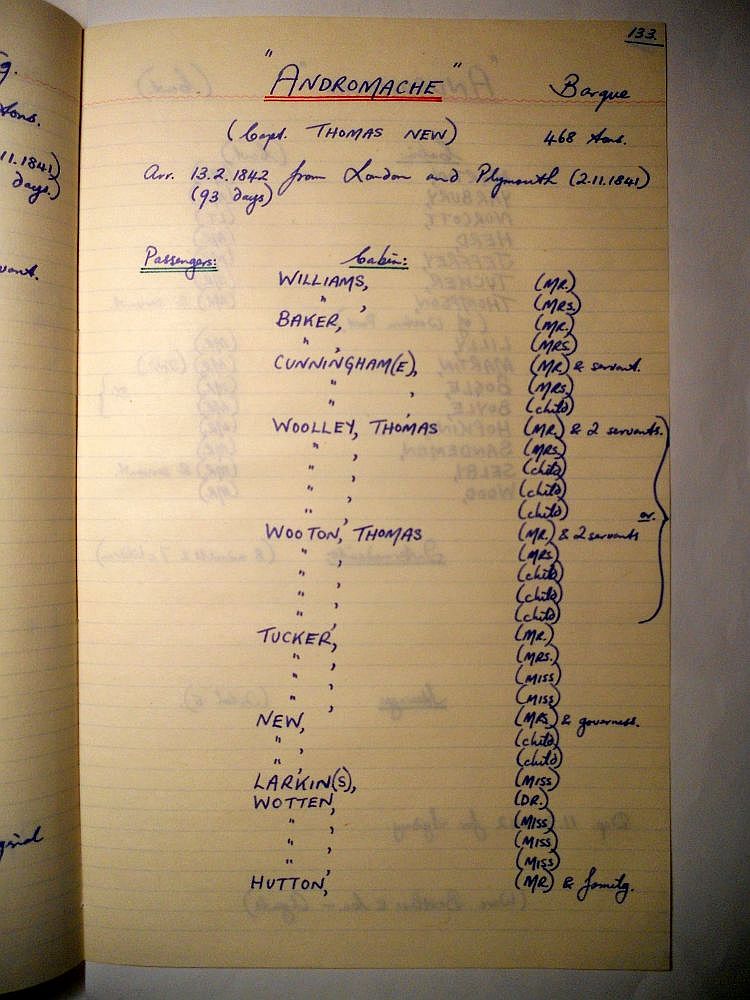 133.
"ANDROMACHE" Barque
(Capt. THOMAS NEW) 468 tons.
Arr. 13.2.1842 from London and Plymouth (2.11.1841)
(93 days)
Passengers: Cabin:
WILLIAMS, (MR.)
" , (MRS.)
BAKER, (MR.)
" , (MRS.)
CUNNINGHAM(E), (MR.) & servant.
" , (MRS.)
" , (child)
WOOLLEY, THOMAS (MR.) & 2 servants.
" , (MRS.)
" , (child)
" , (child)
" , (child)
or.
WOOTON, THOMAS (MR.) & 2 servants
" , (MRS.)
" , (child)
" , (child)
" , (child)
TUCKER, (MR.)
" , (MRS.)
" , (MISS)
" , (MISS)
NEW, (MRS.) & governess.
" , (child)
" , (child)
LARKIN(S), (MISS)
WOTTEN, (DR.)
" , (MISS)
" , (MISS)
" , (MISS)
HUTTON, (MR.) & family.
tons.
11.1841)
days.)